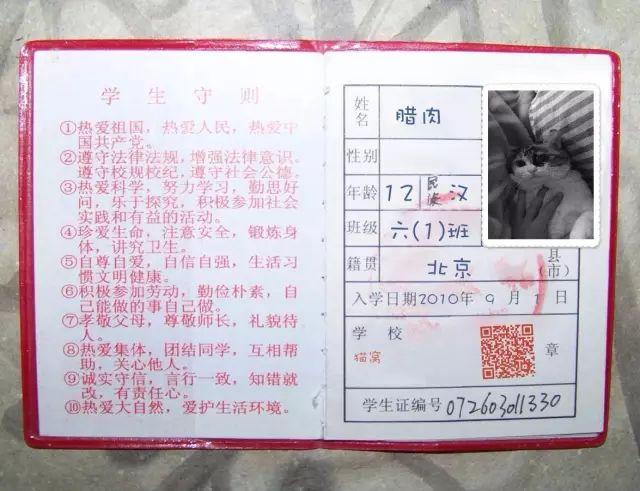 学生守则
①热爱祖国，热爱人民，热爱中
国共产党。
②遵守法律法规，增强法律意识。
遵守校规校纪，遵守社会公德。
③热爱科学，努力学习，勤思好
问，乐于探究，积极参加社会
实践和有益的活动。
④珍爱生命，注意安全，锻炼身
体，讲究卫生。
⑤自尊自爱，自信自强，生活习
惯文明健康。
⑥积极参加劳动，勤俭朴素，自
己能做的事自己做。
⑦孝敬父母，尊敬师长，礼貌待
人。
⑧热爱集体，团结同学，互相帮
助，关心他人。
⑨诚实守信，言行一致，知错就
改，有责任心。
⑩热爱大自然，爱护生活环境。
姓名 腊肉
性别
年龄 12 民族 汉
班级 六(1)班
籍贯 北京 县(市)
入学日期2010年9月1日
学校 章
猫窝
学生证编号 072603011330